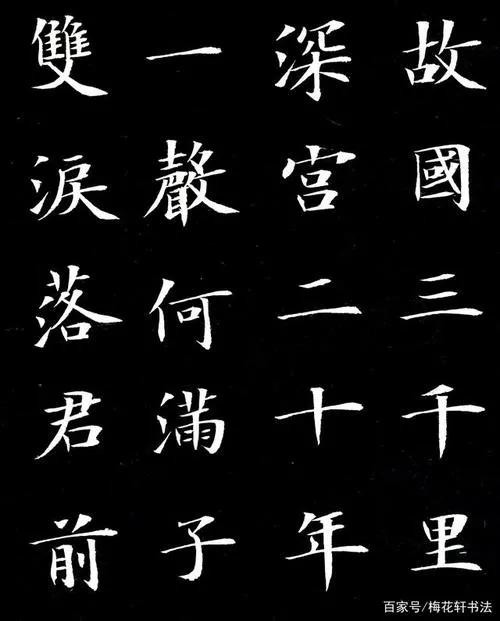 故國三千里
深宮二十年
一聲何滿子
雙淚落君前
百家号/梅花轩书法